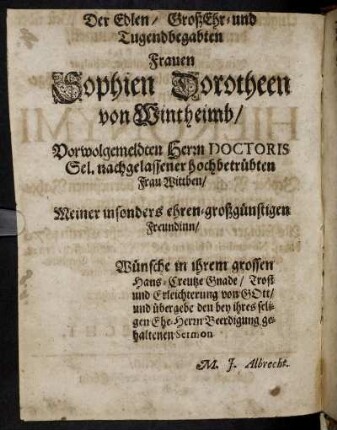 Der Edlen/ GroßEhr- und
Tugendbegabten
Frauen
Sophien Dorotheen
von Wintheimb/
Vorwolgemeldten Herrn DOCTORIS
Sel. nachgelassener hochbetrübten
Frau Wittben/
Meiner insonders ehren-großgünstigen
Freundinn/
Wünsche in ihrem grossen
Haus-Creutze Gnade/ Trost
und Erleichterung von GOtt/
und übergebe den bey ihres seli-
gen Ehe-Herrn Beerdigung ge-
haltenen Sermon
M. J. Albrecht.